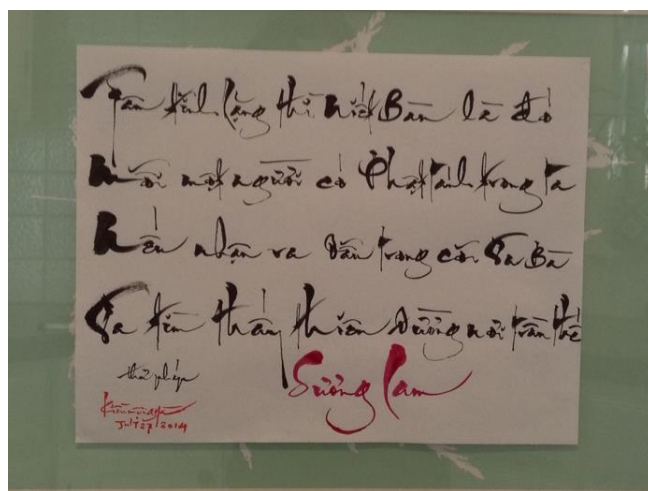 Tâm tĩnh lặng thì Niết Bàn là đó
Mỗi một người có Phật tánh trong ta
Nếu nhận ra dẫu trong cõi Ta Bà
Ta tìm thấy thiên đường nơi trần thế
Sương Lam
thư pháp
2014